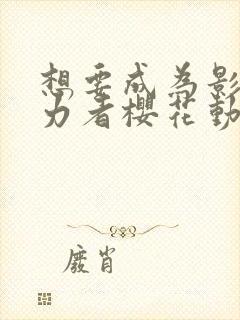 想要成为影
力者樱花動
廢肖